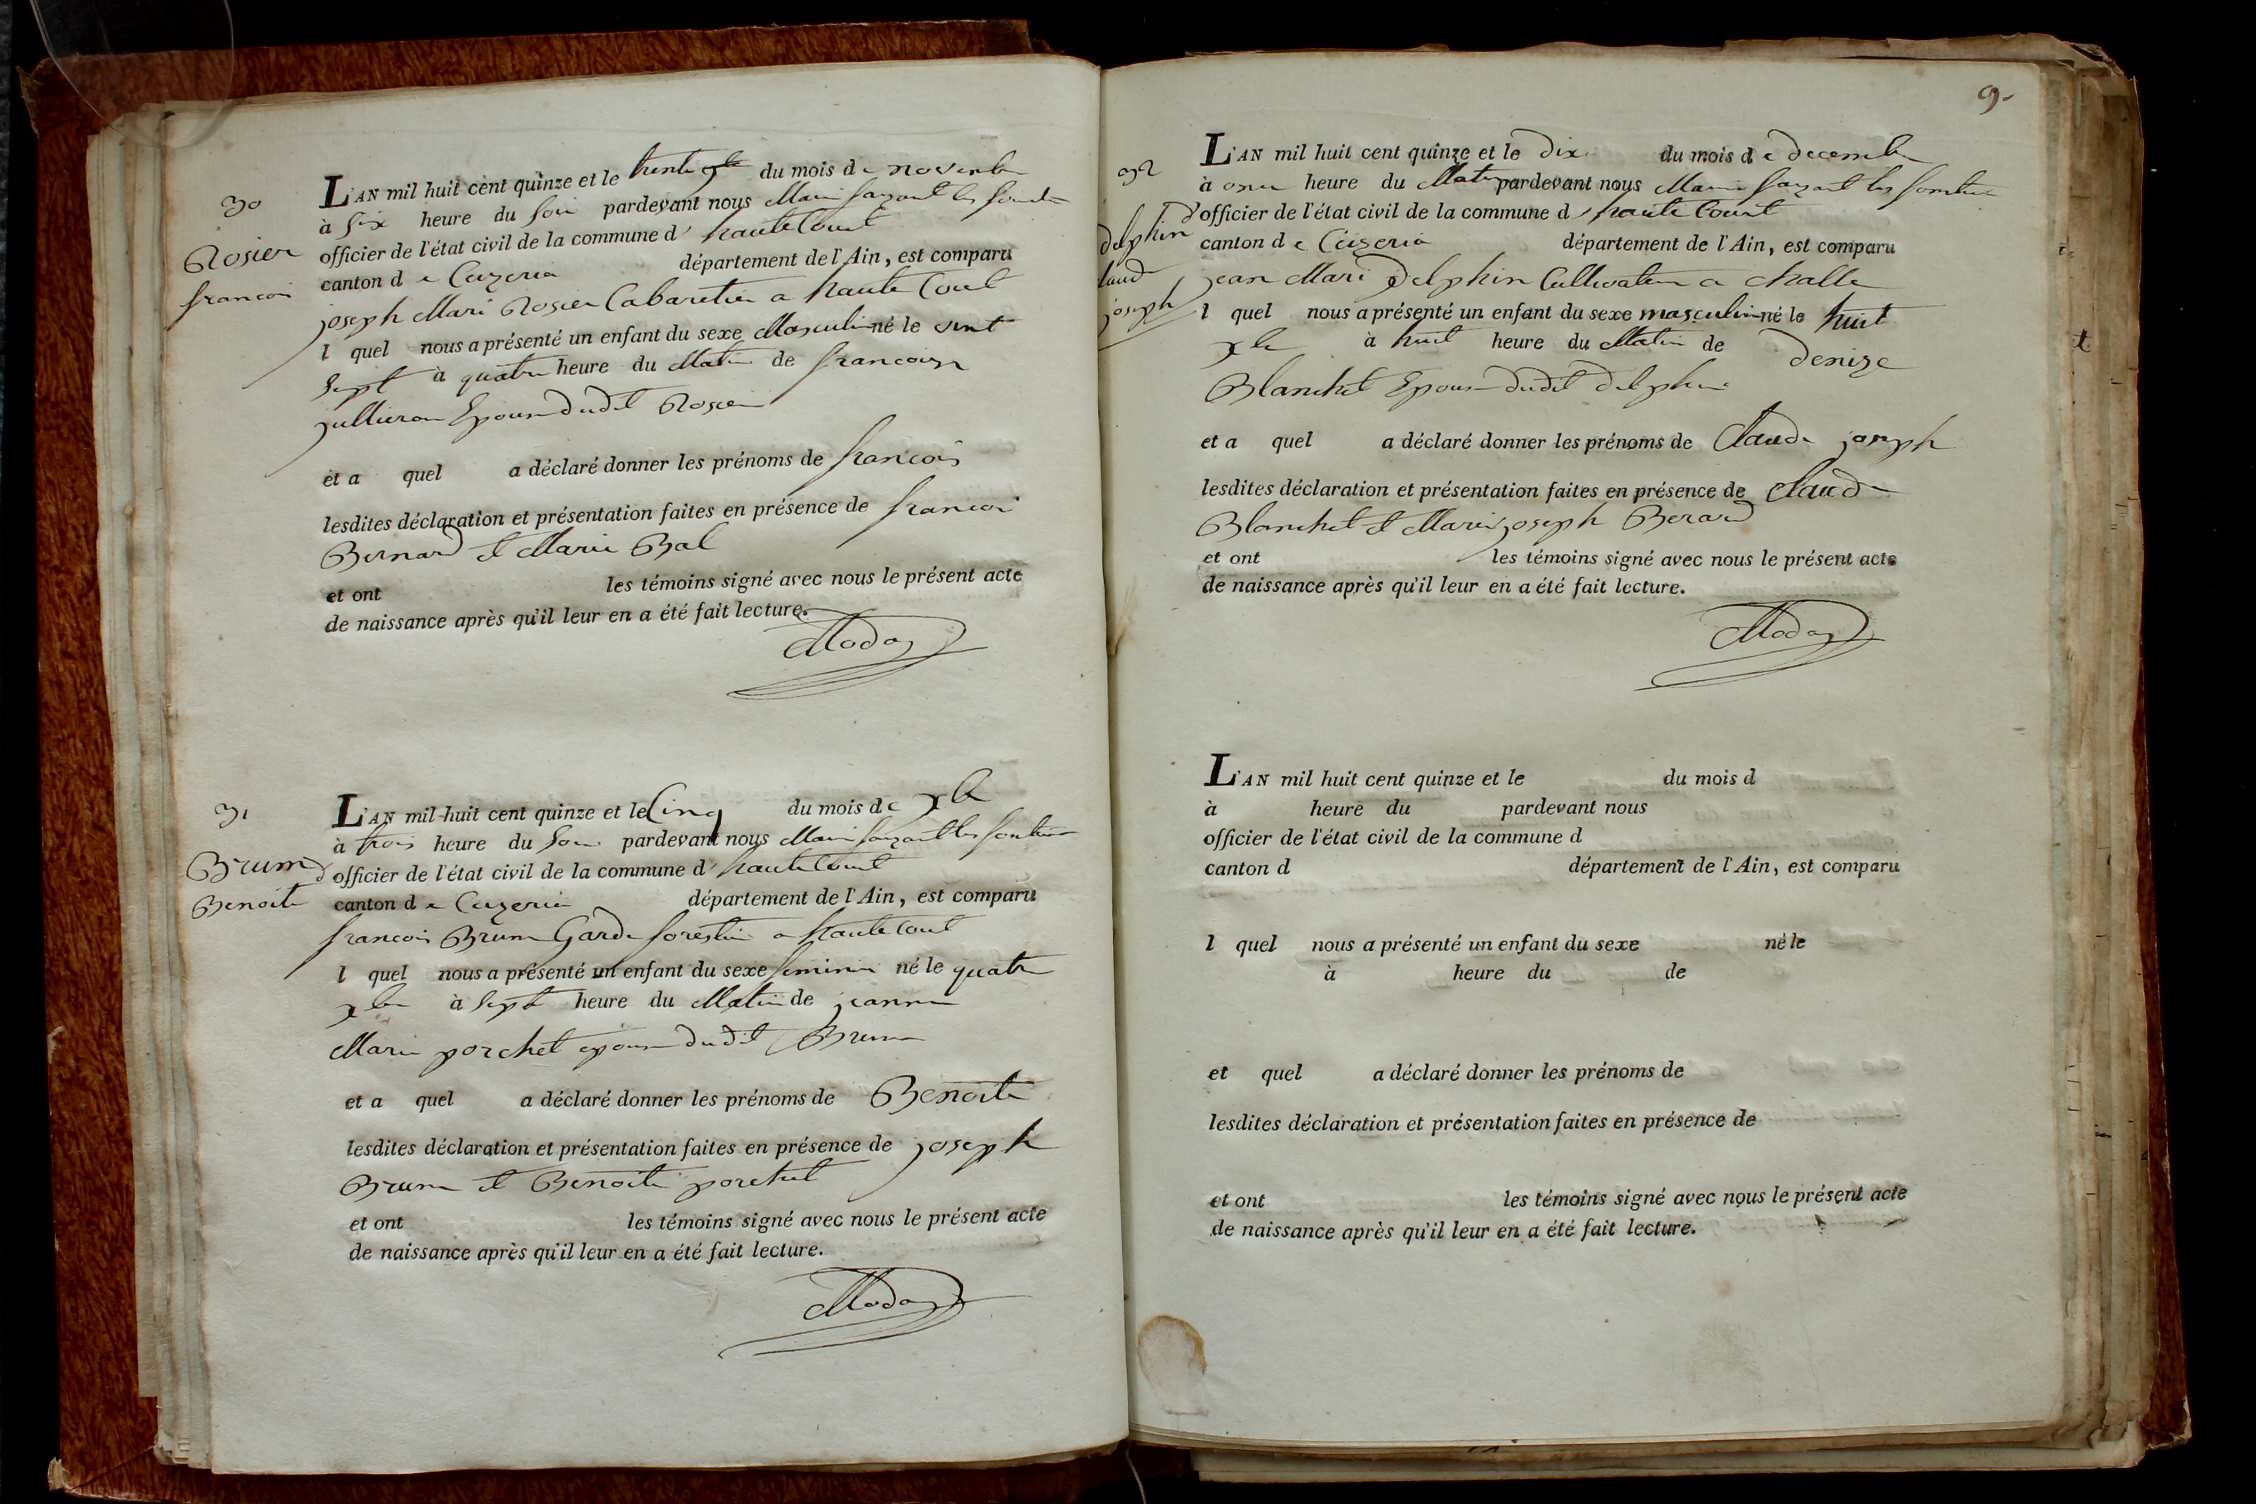 30
Rosier
francois
L'AN mil huit cent quinze et le trente du mois de novembre
à six heure du soir pardevant nous Maire faizant les fonction
officier de l'état civil de la commune d' hautecourt
canton de Ceizeria département de l'Ain, est comparu
joseph Marie Rosier Cabaretier a hautecourt
l quel nous a présenté un enfant du sexe Masculin né le vint
sept à quatre heure du Matin de francoise
jullieron Epouse dudit Rosier
et a quel a déclaré donner les prénoms de francois
lesdites déclaration et présentation faites en présence de francois
Bernard et Marie Bal
et ont les témoins signé avec nous le présent acte
de naissance après qu'il leur en a été fait lecture.
31
Brun
Benoite
L'AN mil huit cent quinze et le Cinq du mois de xbre
à trois heure du soir pardevant nous Maire faizant les fonction
d'officier de l'état civil de la commune d' hautecourt
canton de Ceizeria département de l'Ain, est comparu
francois Brun Garde forestier a hautecourt
l quel nous a présenté un enfant du sexe feminin né le quatre
xbre à sept heure du Matin de jeanne
Marie porchet epouse dudit Brun
et a quel a déclaré donner les prénoms de Benoite
lesdites déclaration et présentation faites en présence de joseph
Brun et Benoite porchet
et ont les témoins signé avec nous le présent acte
de naissance après qu'il leur en a été fait lecture.
9.
32
delphin
laude
joseph
L'AN mil huit cent quinze et le dix du mois de decembre
à onze heure du Matin pardevant nous Maire faizant les fonction
d'officier de l'état civil de la commune d' hautecourt
canton de Ceizeria département de l'Ain, est comparu
jean Marie Delphin Cultivateur a challe
l quel nous a présenté un enfant du sexe masculin né le huit
xbre à huit heure du Matin de denize
Blanchet Epouse dudit delphin
et a quel a déclaré donner les prénoms de Claude joseph
lesdites déclaration et présentation faites en présence de Claude
Blanchet et Marie joseph Berard
et ont les témoins signé avec nous le présent acte
de naissance après qu'il leur en a été fait lecture.
L'AN mil huit cent quinze et le du mois d
à heure du pardevant nous
officier de l'état civil de la commune d
canton d département de l'Ain, est comparu
l quel nous a présenté un enfant du sexe né le
à heure du de
et quel a déclaré donner les prénoms de
lesdites déclaration et présentation faites en présence de
et ont les témoins signé avec nous le présent acte
de naissance après qu'il leur en a été fait lecture.